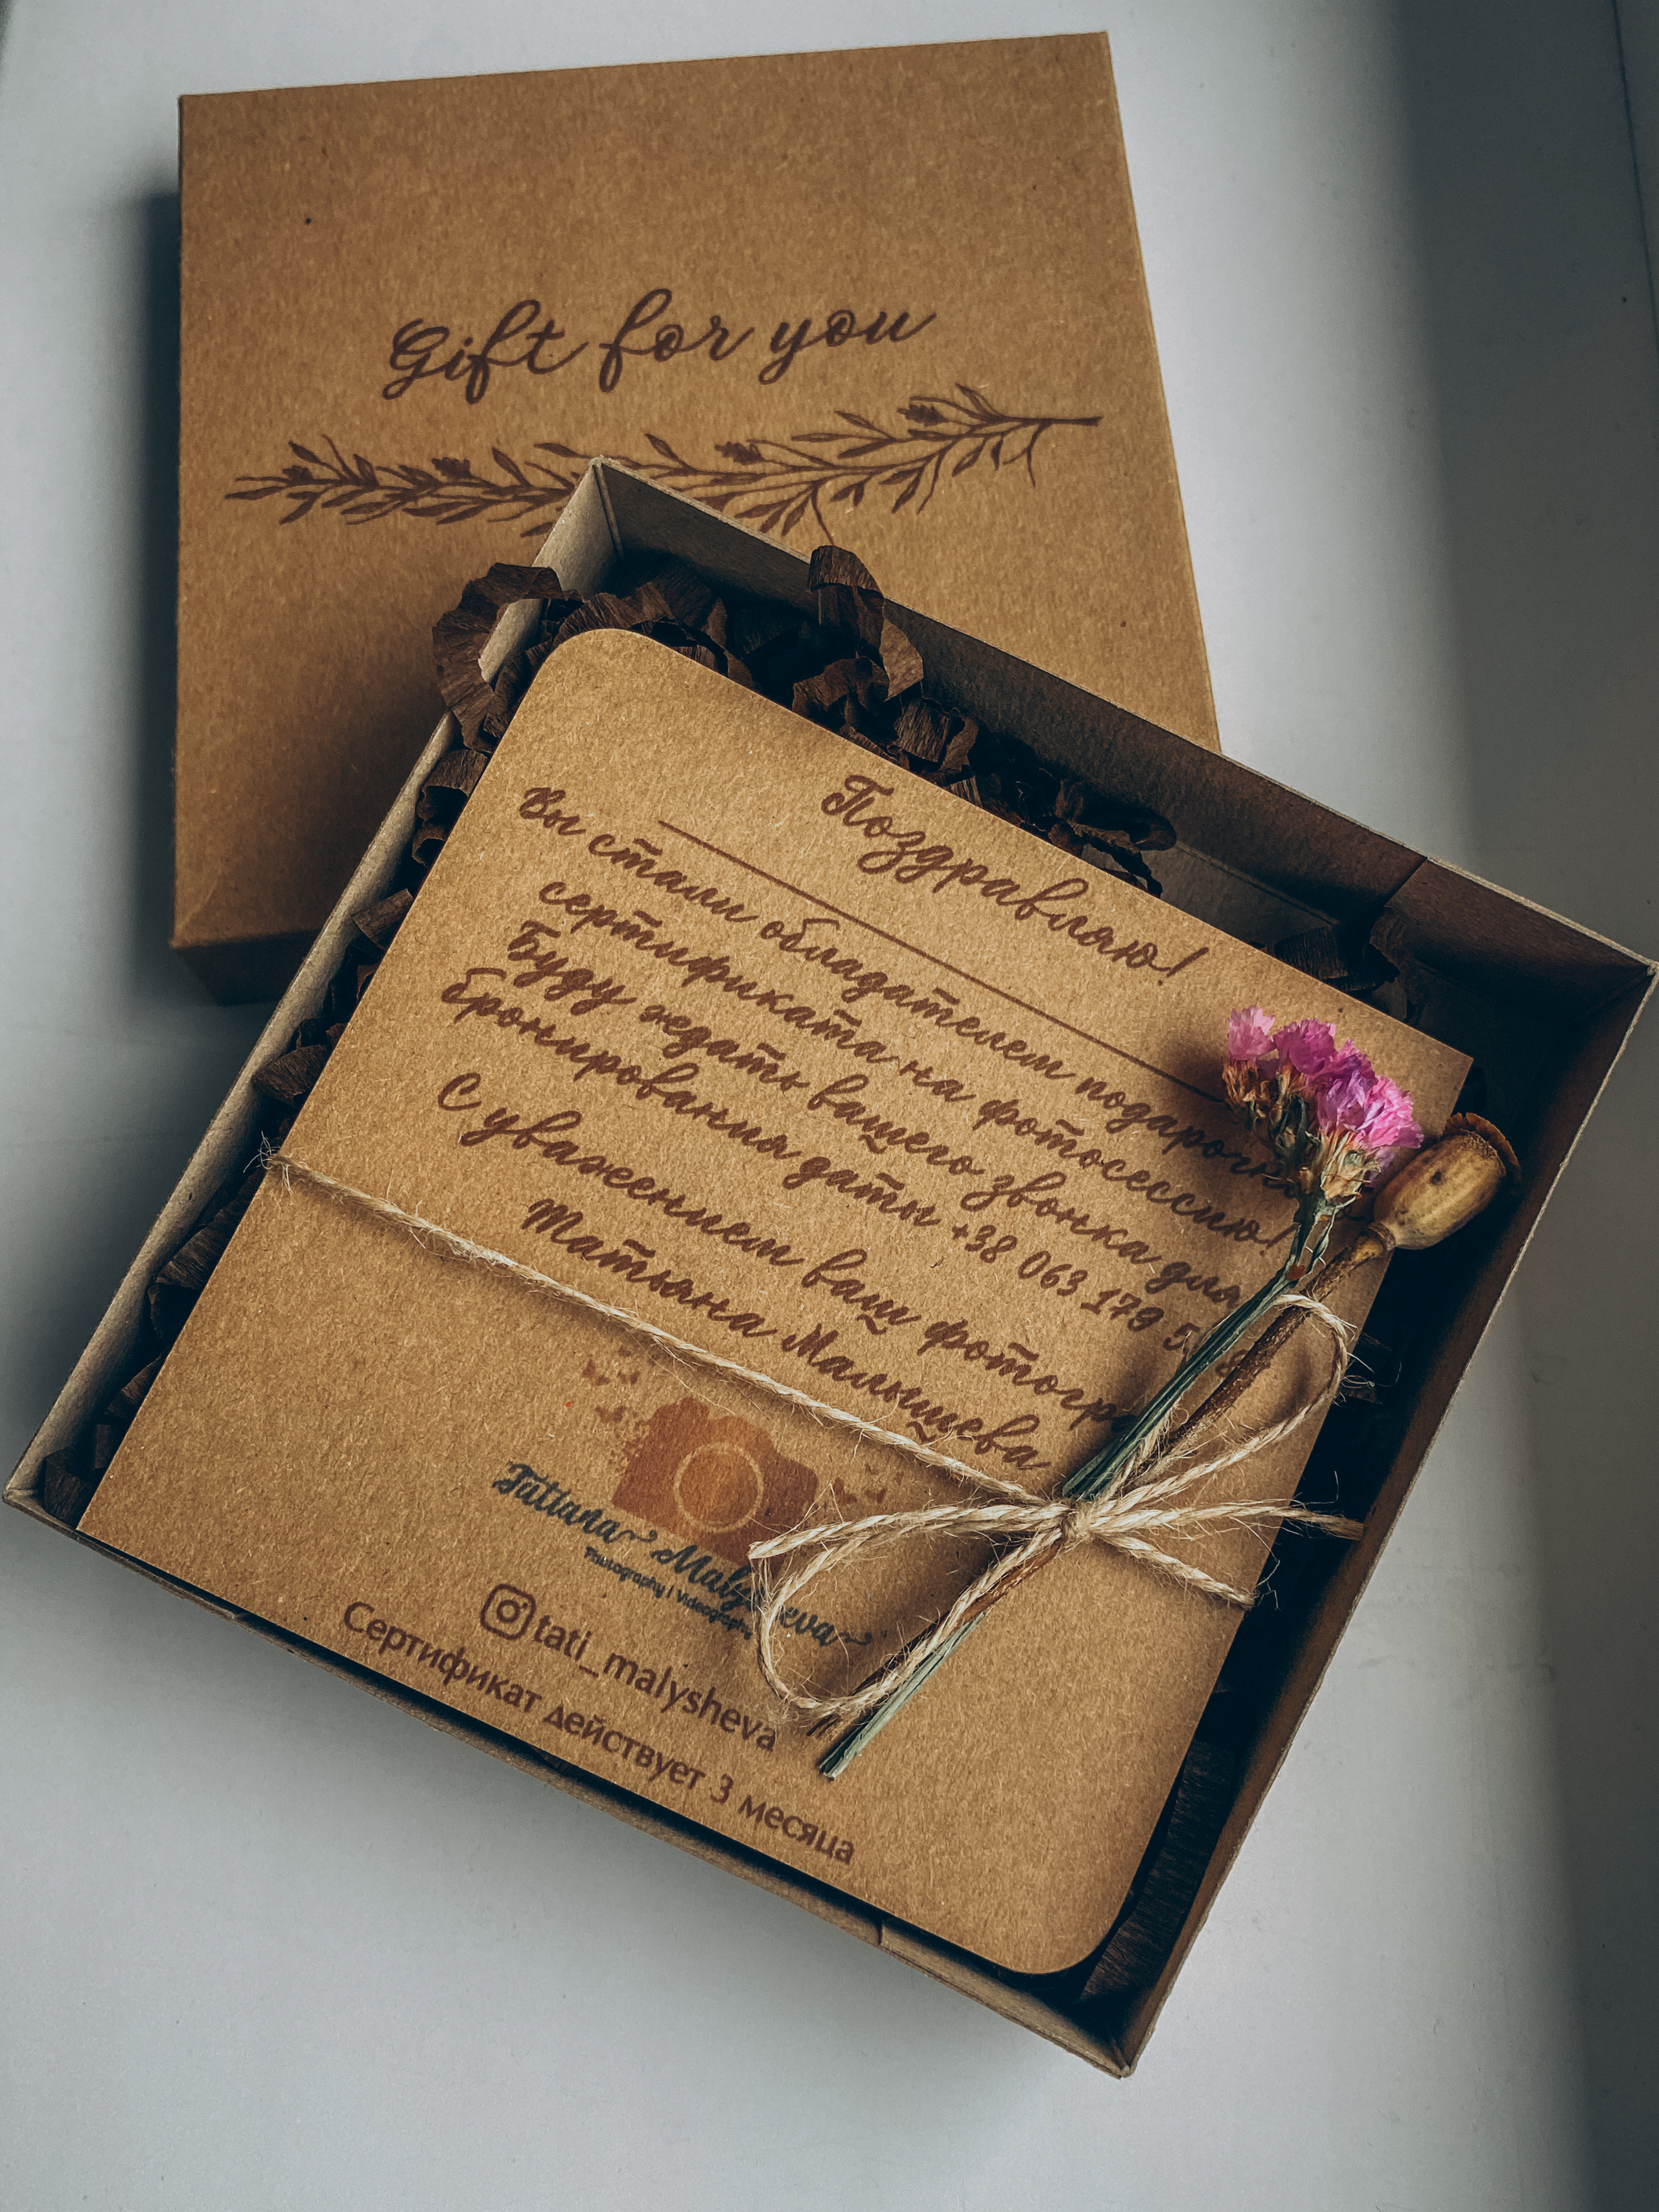 Gift for you
Поздравляю!
Вы стали обладателем
сертификата на фотосессию!
Буду ждать вашего звонка для
бронирования даты +38 063 179
С уважением ваш
Татьяна Малышева
Tatiana
Photography | Videography
tati_malysheva
Сертификат действует 3 месяца